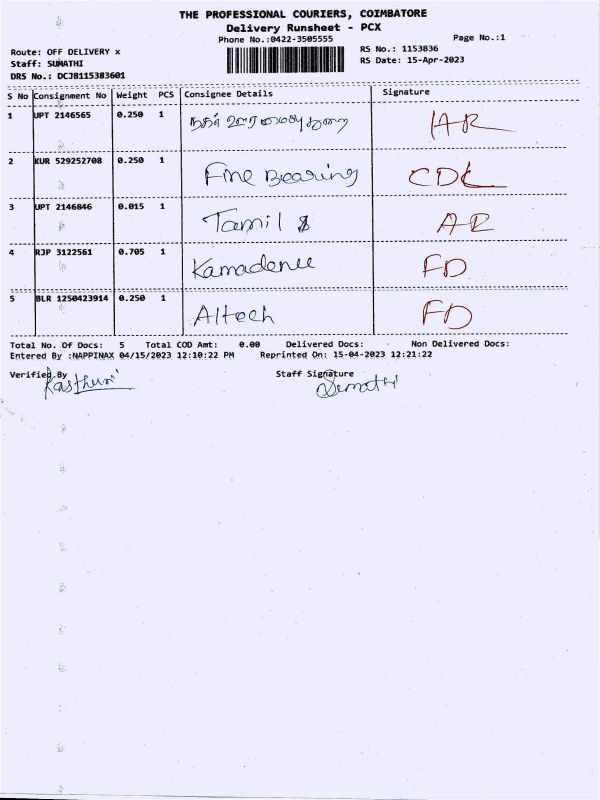 THE PROFESSIONAL COURIERS, COIMBATORE
Delivery Runsheet - PCX
Phone No.:0422-3505555
Page No.:1
Route: OFF DELIVERY x
RS No.: 1153836
Staff: SUMATHI
RS Date: 15-Apr-2023
DRS No.: DCJB115383601
S No Consignment No Weight PCS Consignee Details Signature
1 UPT 2146565 0.250 1 நகர் ஊரமைப்பு துறை AR
2 KUR 529252708 0.250 1 Fine Bearing CDC
3 UPT 2146846 0.015 1 Tamil AR
4 RJP 3122561 0.705 1 Kamadenu FD
5 BLR 1250423914 0.250 1 Altech FD
Total No. Of Docs: 5 Total COD Amt: 0.00 Delivered Docs: Non Delivered Docs:
Entered By :NAPPINAX 04/15/2023 12:10:22 PM Reprinted On: 15-04-2023 12:21:22
Verified By Staff Signature
Kasthuri Sumathi